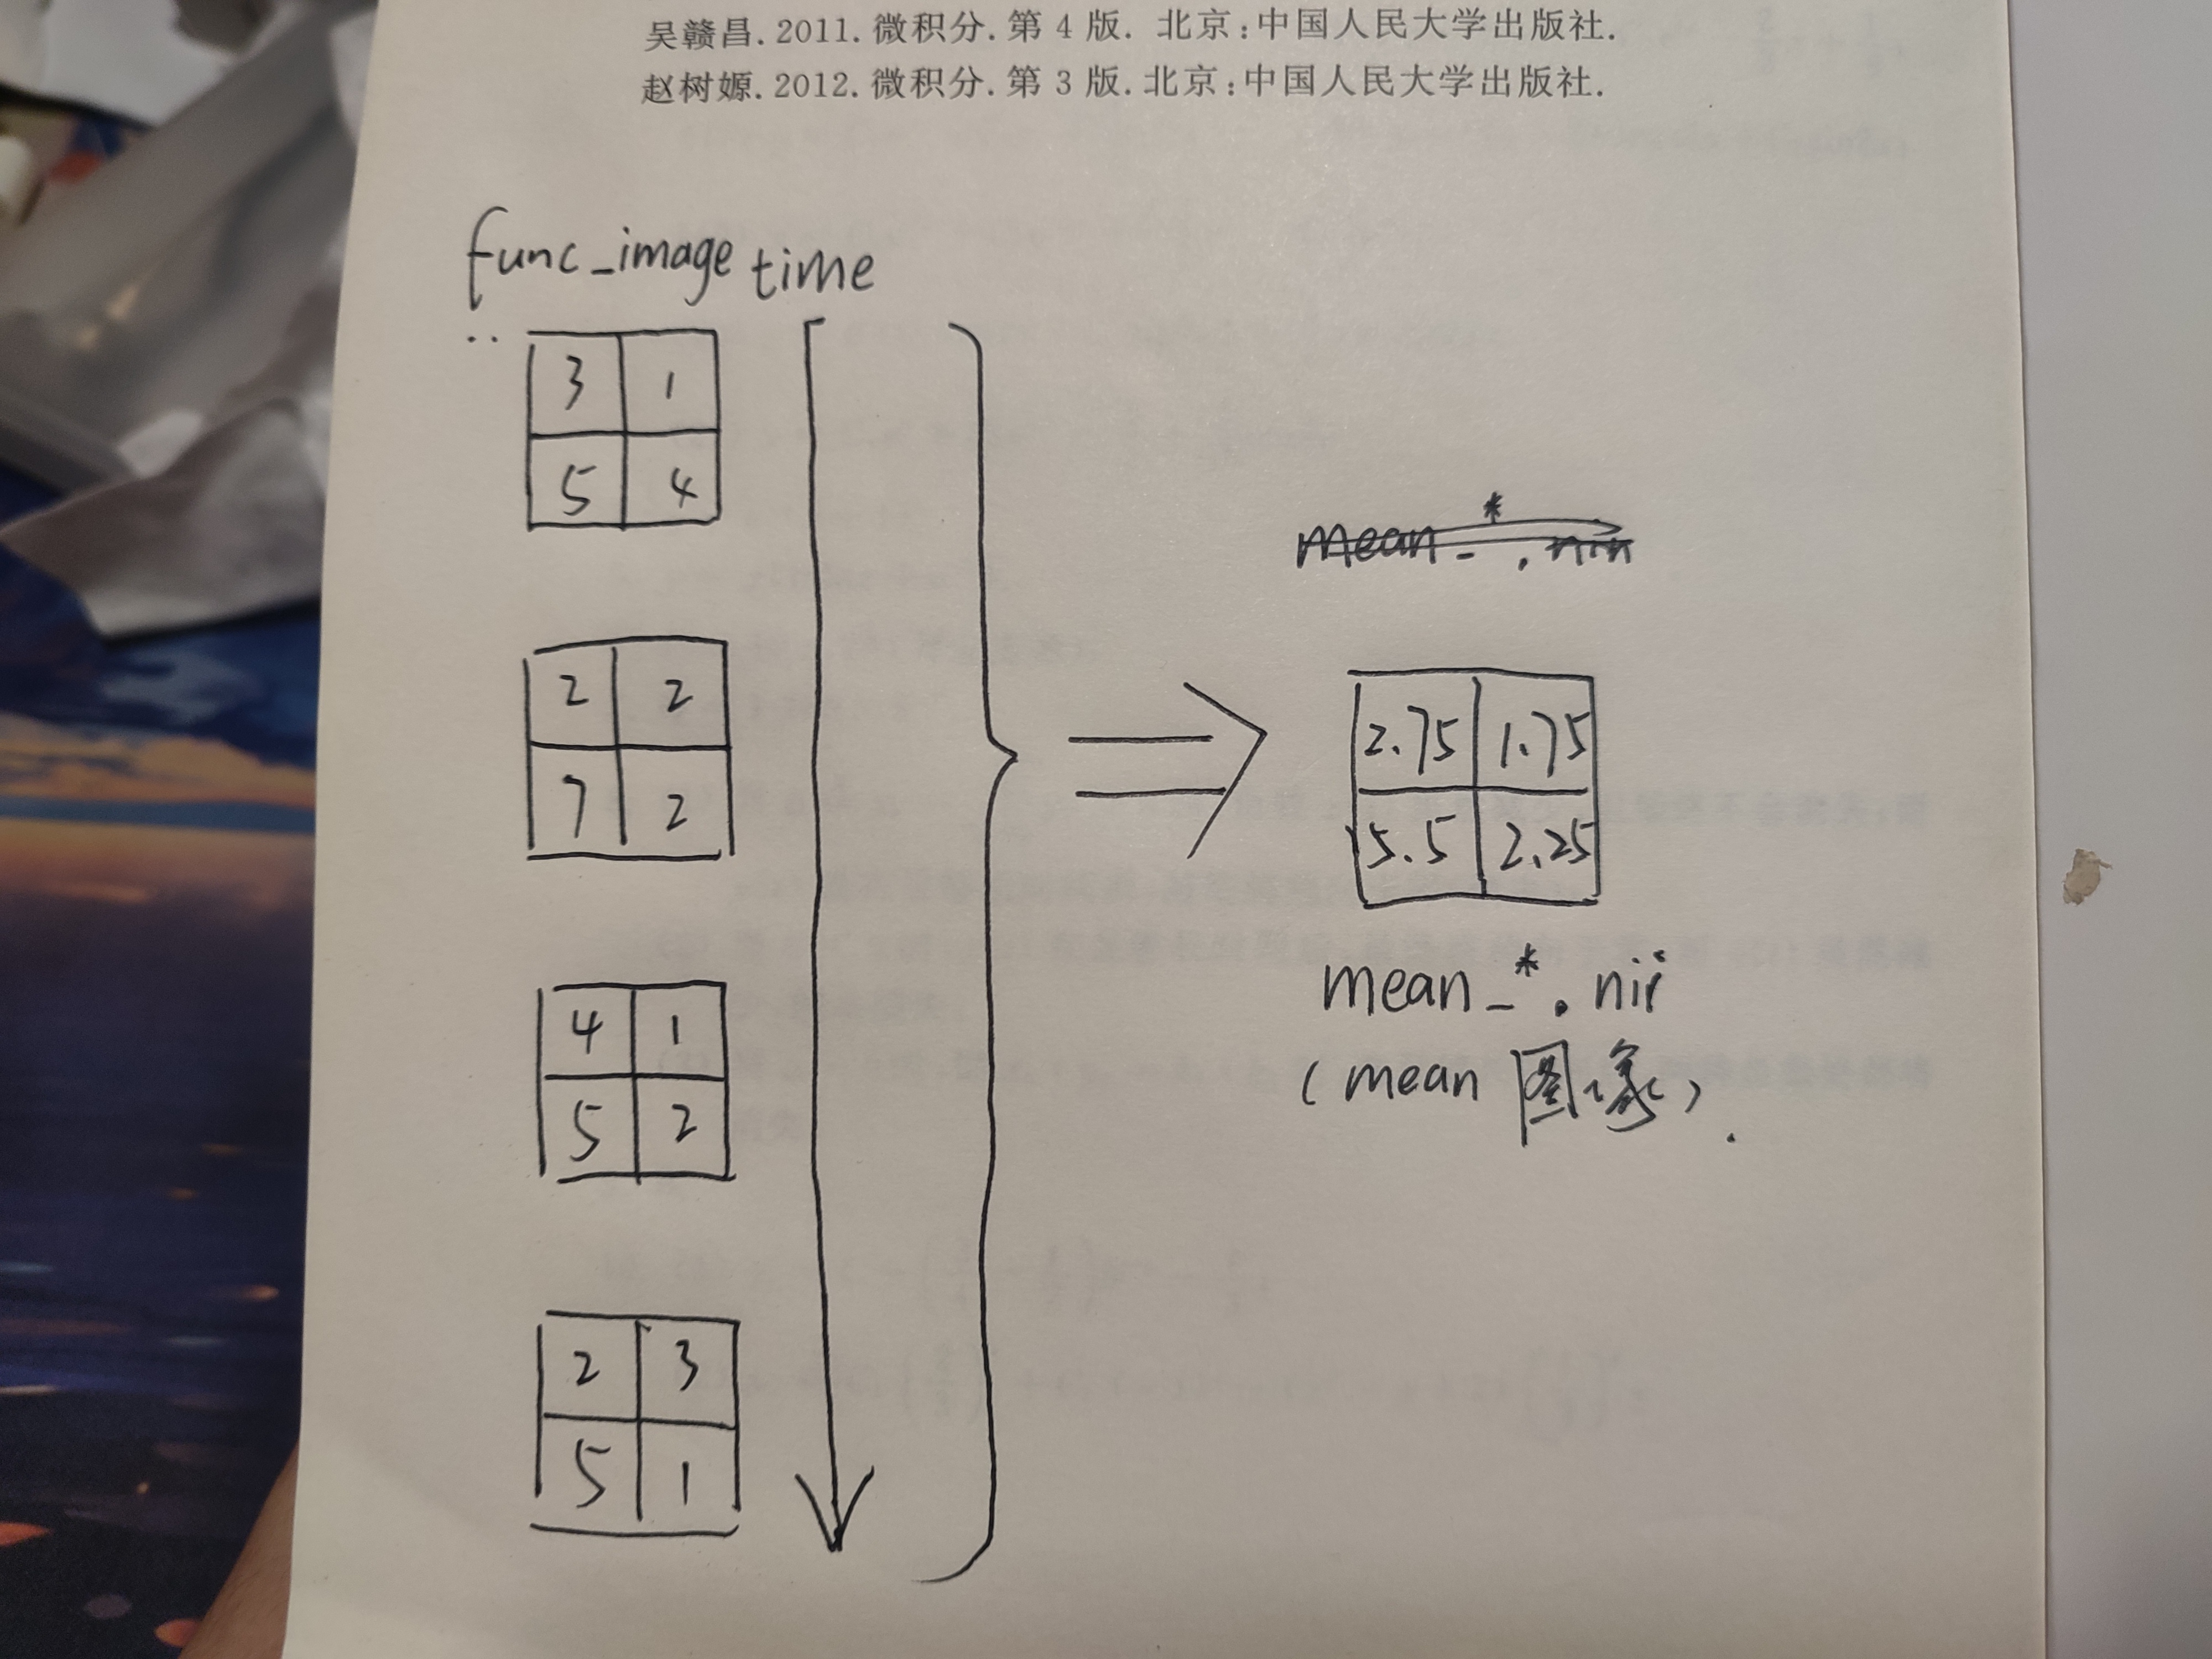 吴赣昌. 2011. 微积分. 第 4 版. 北京:中国人民大学出版社.
赵树嫄. 2012. 微积分. 第 3 版. 北京:中国人民大学出版社.
func_image time
3 1
5 4
2 2
7 2
4 1
5 2
2 3
5 1
2.75 1.75
5.5 2.25
mean_*.nii
(mean 图像).